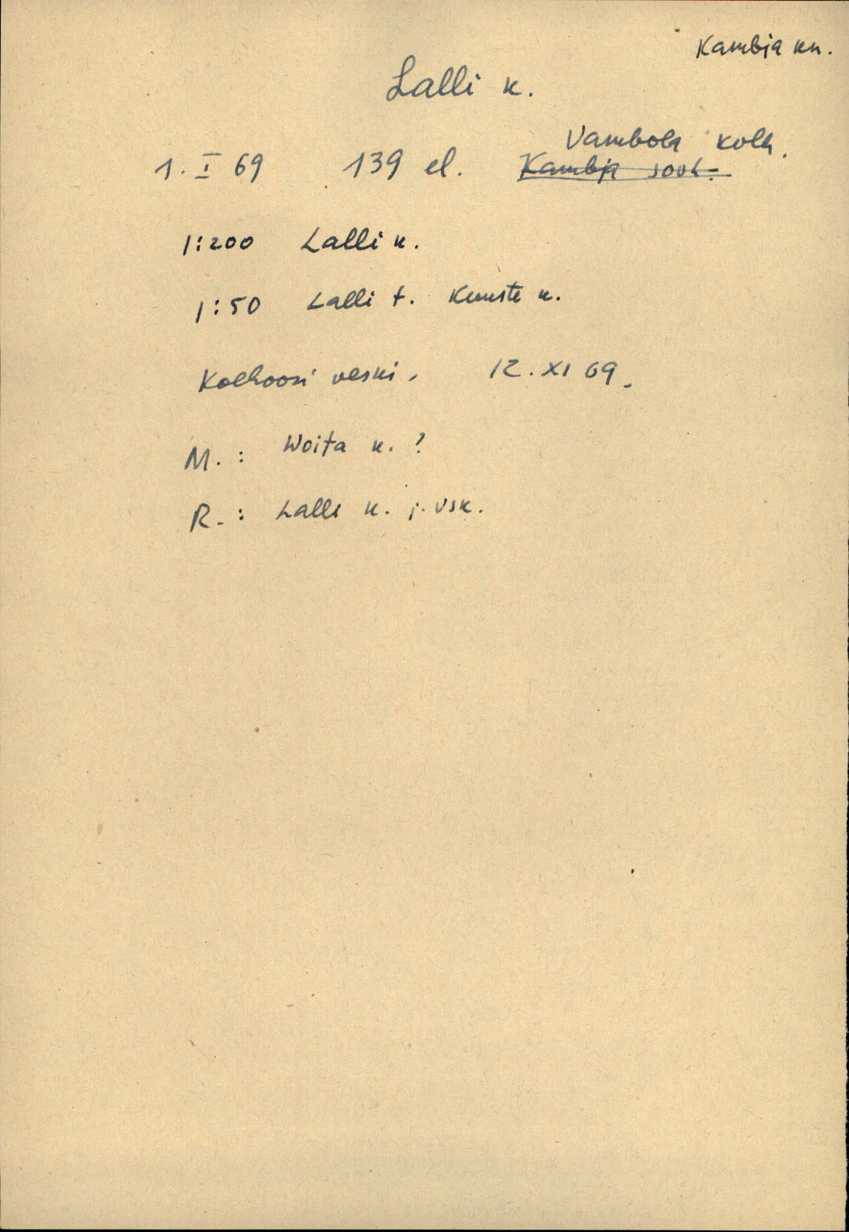 Kambja kn.
Lalli k.
Vambola kolh.
1. I 69 139 el. Kambja sovh.
1:200 Lalli k.
1:50 Lalli t. k.
Kolhoosi veski, 12. XI 69.
M.: Woita k. ?
R.: Lalli k. j. vsk.